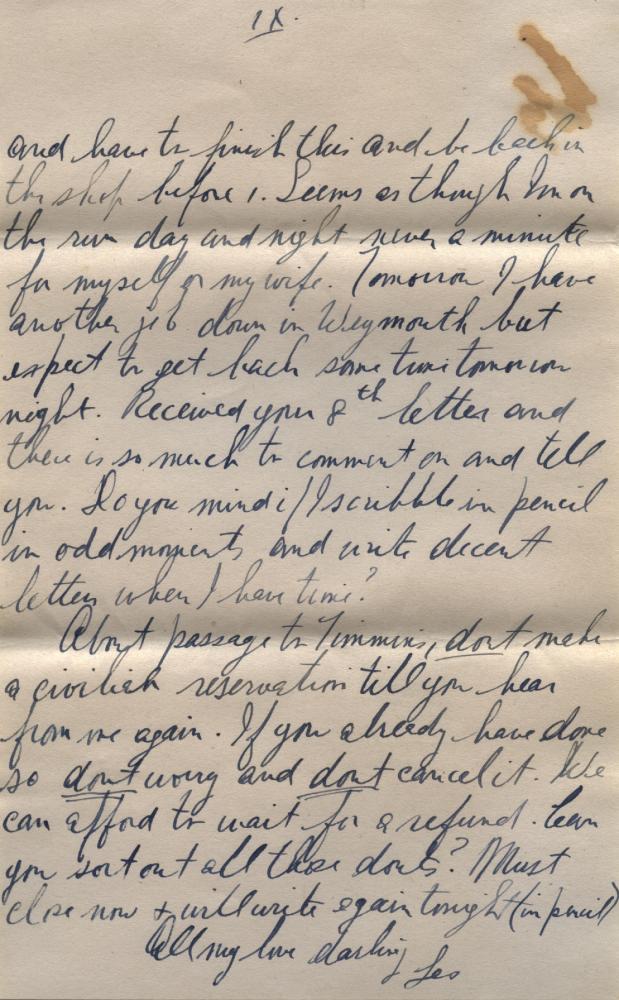 IX.
and have to finish this and be back in
the shop before 1. Seems as though I'm on
the run day and night never a minute
for myself or my wife. Tomorrow I have
another job down in Weymouth but
expect to get back some time tomorrow
night. Received your 8th letter and
there is so much to comment on and tell
you. Do you mind if I scribble in pencil
in odd moments and write decent
letters when I have time?
About passage to Timmins, dont make
a civilian reservation till you hear
from me again. If you already have done
so dont worry and dont cancel it. We
can afford to wait for a refund. Can
you sort out all those donts? Must
close now + will write again tonight (in pencil)
All my love darling
Les